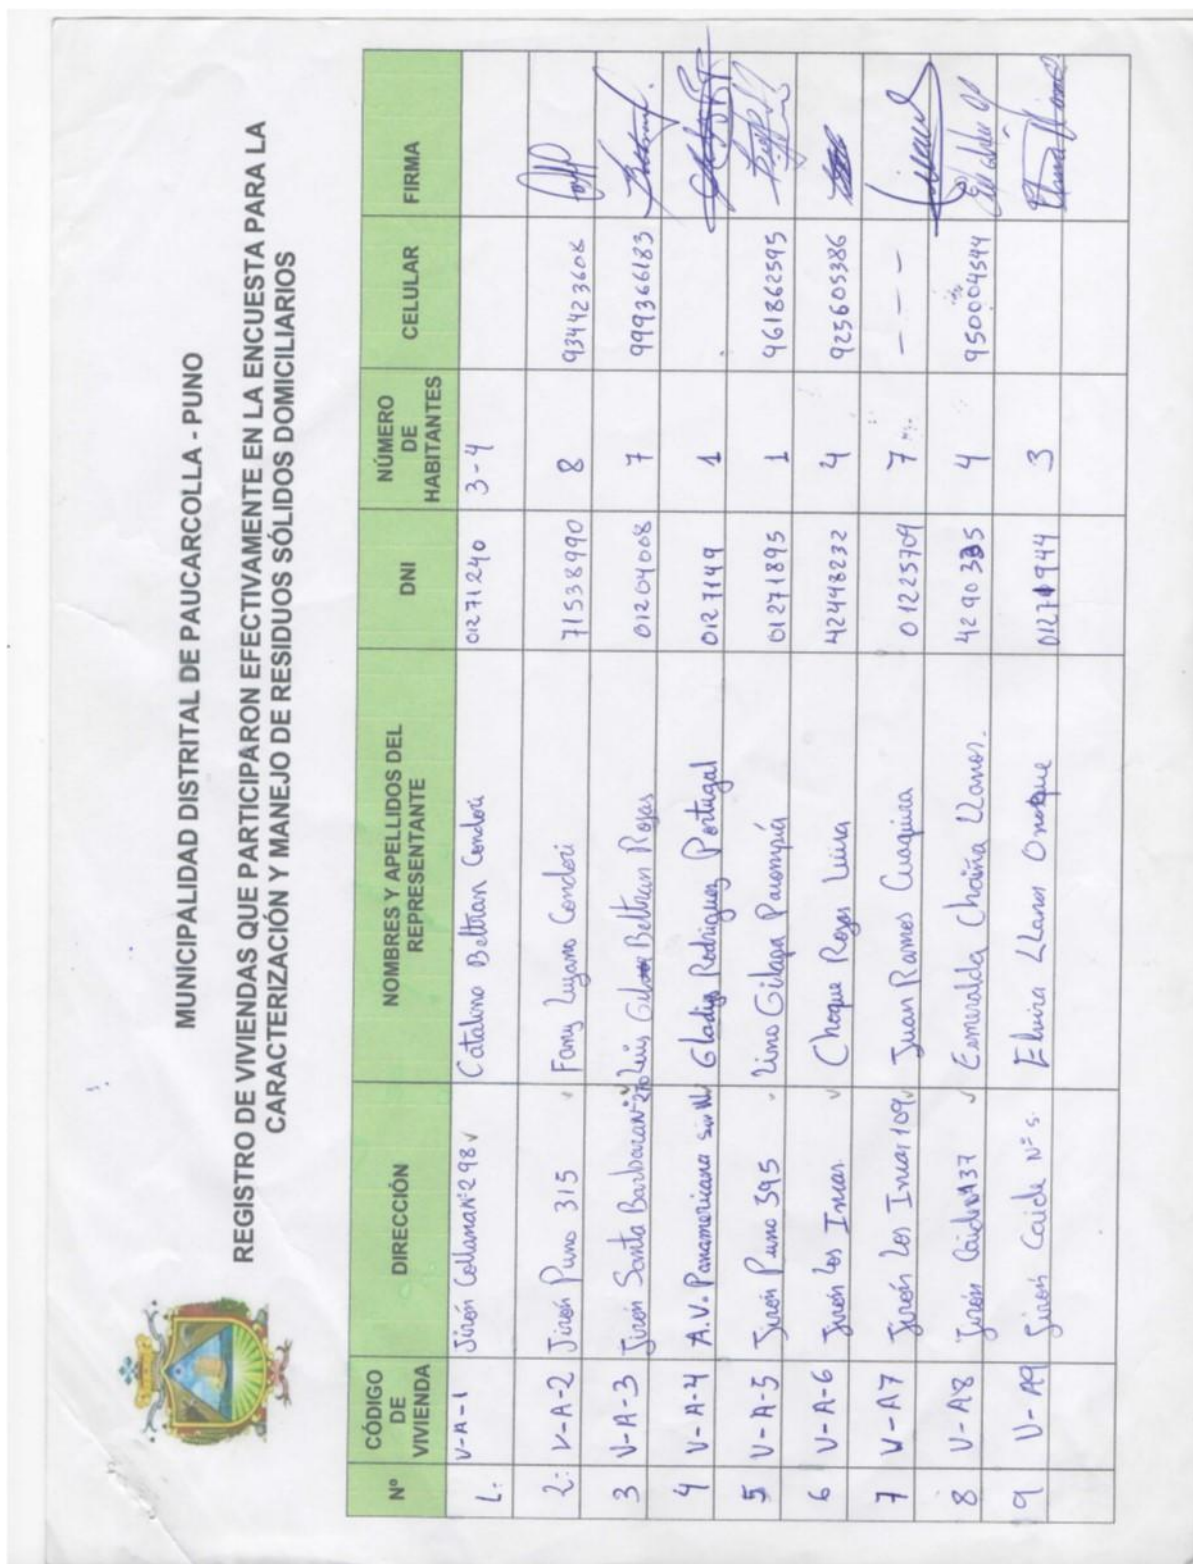 MUNICIPALIDAD DISTRITAL DE PAUCARCOLLA - PUNO
REGISTRO DE VIVIENDAS QUE PARTICIPARON EFECTIVAMENTE EN LA ENCUESTA PARA LA
CARACTERIZACIÓN Y MANEJO DE RESIDUOS SÓLIDOS DOMICILIARIOS
Nº CÓDIGO DE VIVIENDA DIRECCIÓN NOMBRES Y APELLIDOS DEL REPRESENTANTE DNI NÚMERO DE HABITANTES CELULAR FIRMA
1: V-A-1 Jirón Collama Nº 298 Catalino Beltran Condori 01271240 3-4
2: V-A-2 Jirón Puno 315 Fany Lujano Condori 71538990 8 934423608
3 V-A-3 Jirón Santa Barbara Nº Luis Beltran Rojas 01204008 7 999366183
4 V-A-4 A.V. Panamericana Gladys Rodriguez Portugal 0127149 1
5 V-A-5 Jirón Puno 395 Lino Gilapa Parompía 01271895 1 961862595
6 V-A-6 Jirón Los Incas Choque Rojas Luisa 42448232 4 925605386
7 V-A7 Jirón Los Incas 109 Juan Ramos Cuaquira 01225709 7 ----
8 V-A8 Jirón Esmeralda Chaiña Llanos. 4 950004544
9 V-A9 Jirón Caide Nº s. Elvira Llanos 3